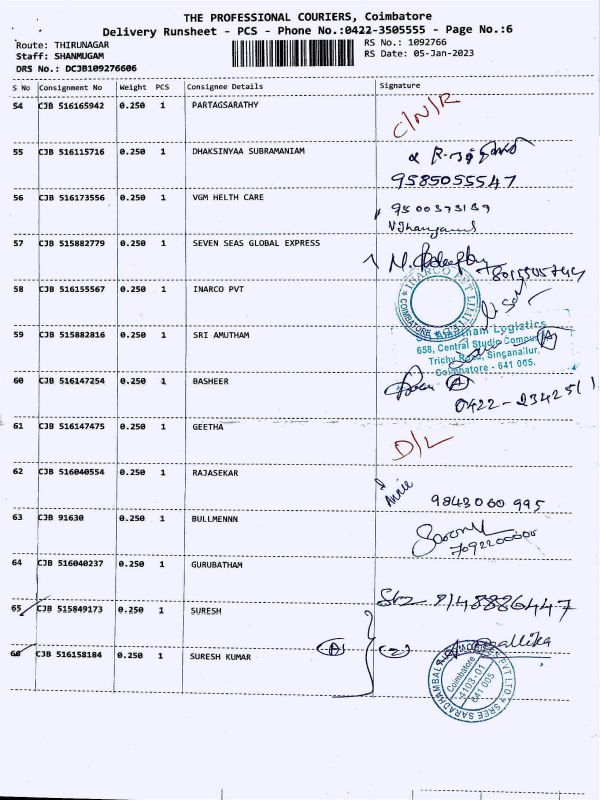 THE PROFESSIONAL COURIERS, Coimbatore
Delivery Runsheet - PCS - Phone No.:0422-3505555 - Page No.:6
Route: THIRUNAGAR
Staff: SHANMUGAM
DRS No.: DCJB109276606
RS No.: 1092766
RS Date: 05-Jan-2023
S No Consignment No Weight PCS Consignee Details Signature
54 CJB 516165942 0.250 1 PARTAGSARATHY C/N/R
55 CJB 516115716 0.250 1 DHAKSINYAA SUBRAMANIAM
9585055547
56 CJB 516173556 0.250 1 VGM HELTH CARE
57 CJB 515882779 0.250 1 SEVEN SEAS GLOBAL EXPRESS
58 CJB 516155567 0.250 1 INARCO PVT
INARCO PVT LIMITED
COIMBATORE
59 CJB 515882816 0.250 1 SRI AMUTHAM
Logistics
658, Central Studio
Trichy Road, Singanallur,
Coimbatore - 641 005.
60 CJB 516147254 0.250 1 BASHEER
61 CJB 516147475 0.250 1 GEETHA D/L
62 CJB 516040554 0.250 1 RAJASEKAR
9843060995
63 CJB 91630 0.250 1 BULLMENNN
7092200000
64 CJB 516040237 0.250 1 GURUBATHAM
8148886447
65 CJB 515849173 0.250 1 SURESH
66 CJB 516158184 0.250 1 SURESH KUMAR (A) (2)
Coimbatore
641 005